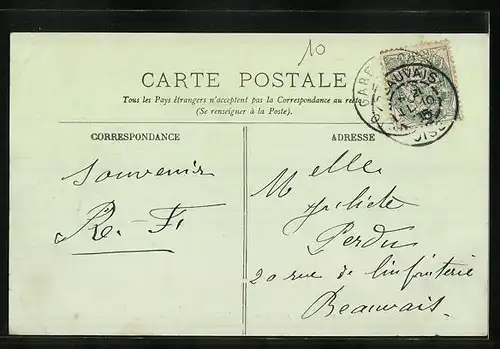 10
CARTE POSTALE
Tous les Pays étrangers n'acceptent pas la Correspondance au recto
(Se renseigner à la Poste).
CORRESPONDANCE
ADRESSE
GARE BEAUVAIS
OISE
Souvenir
R.-F.
Melle
Juliette
Perdu
20 rue de l'infanterie
Beauvais.